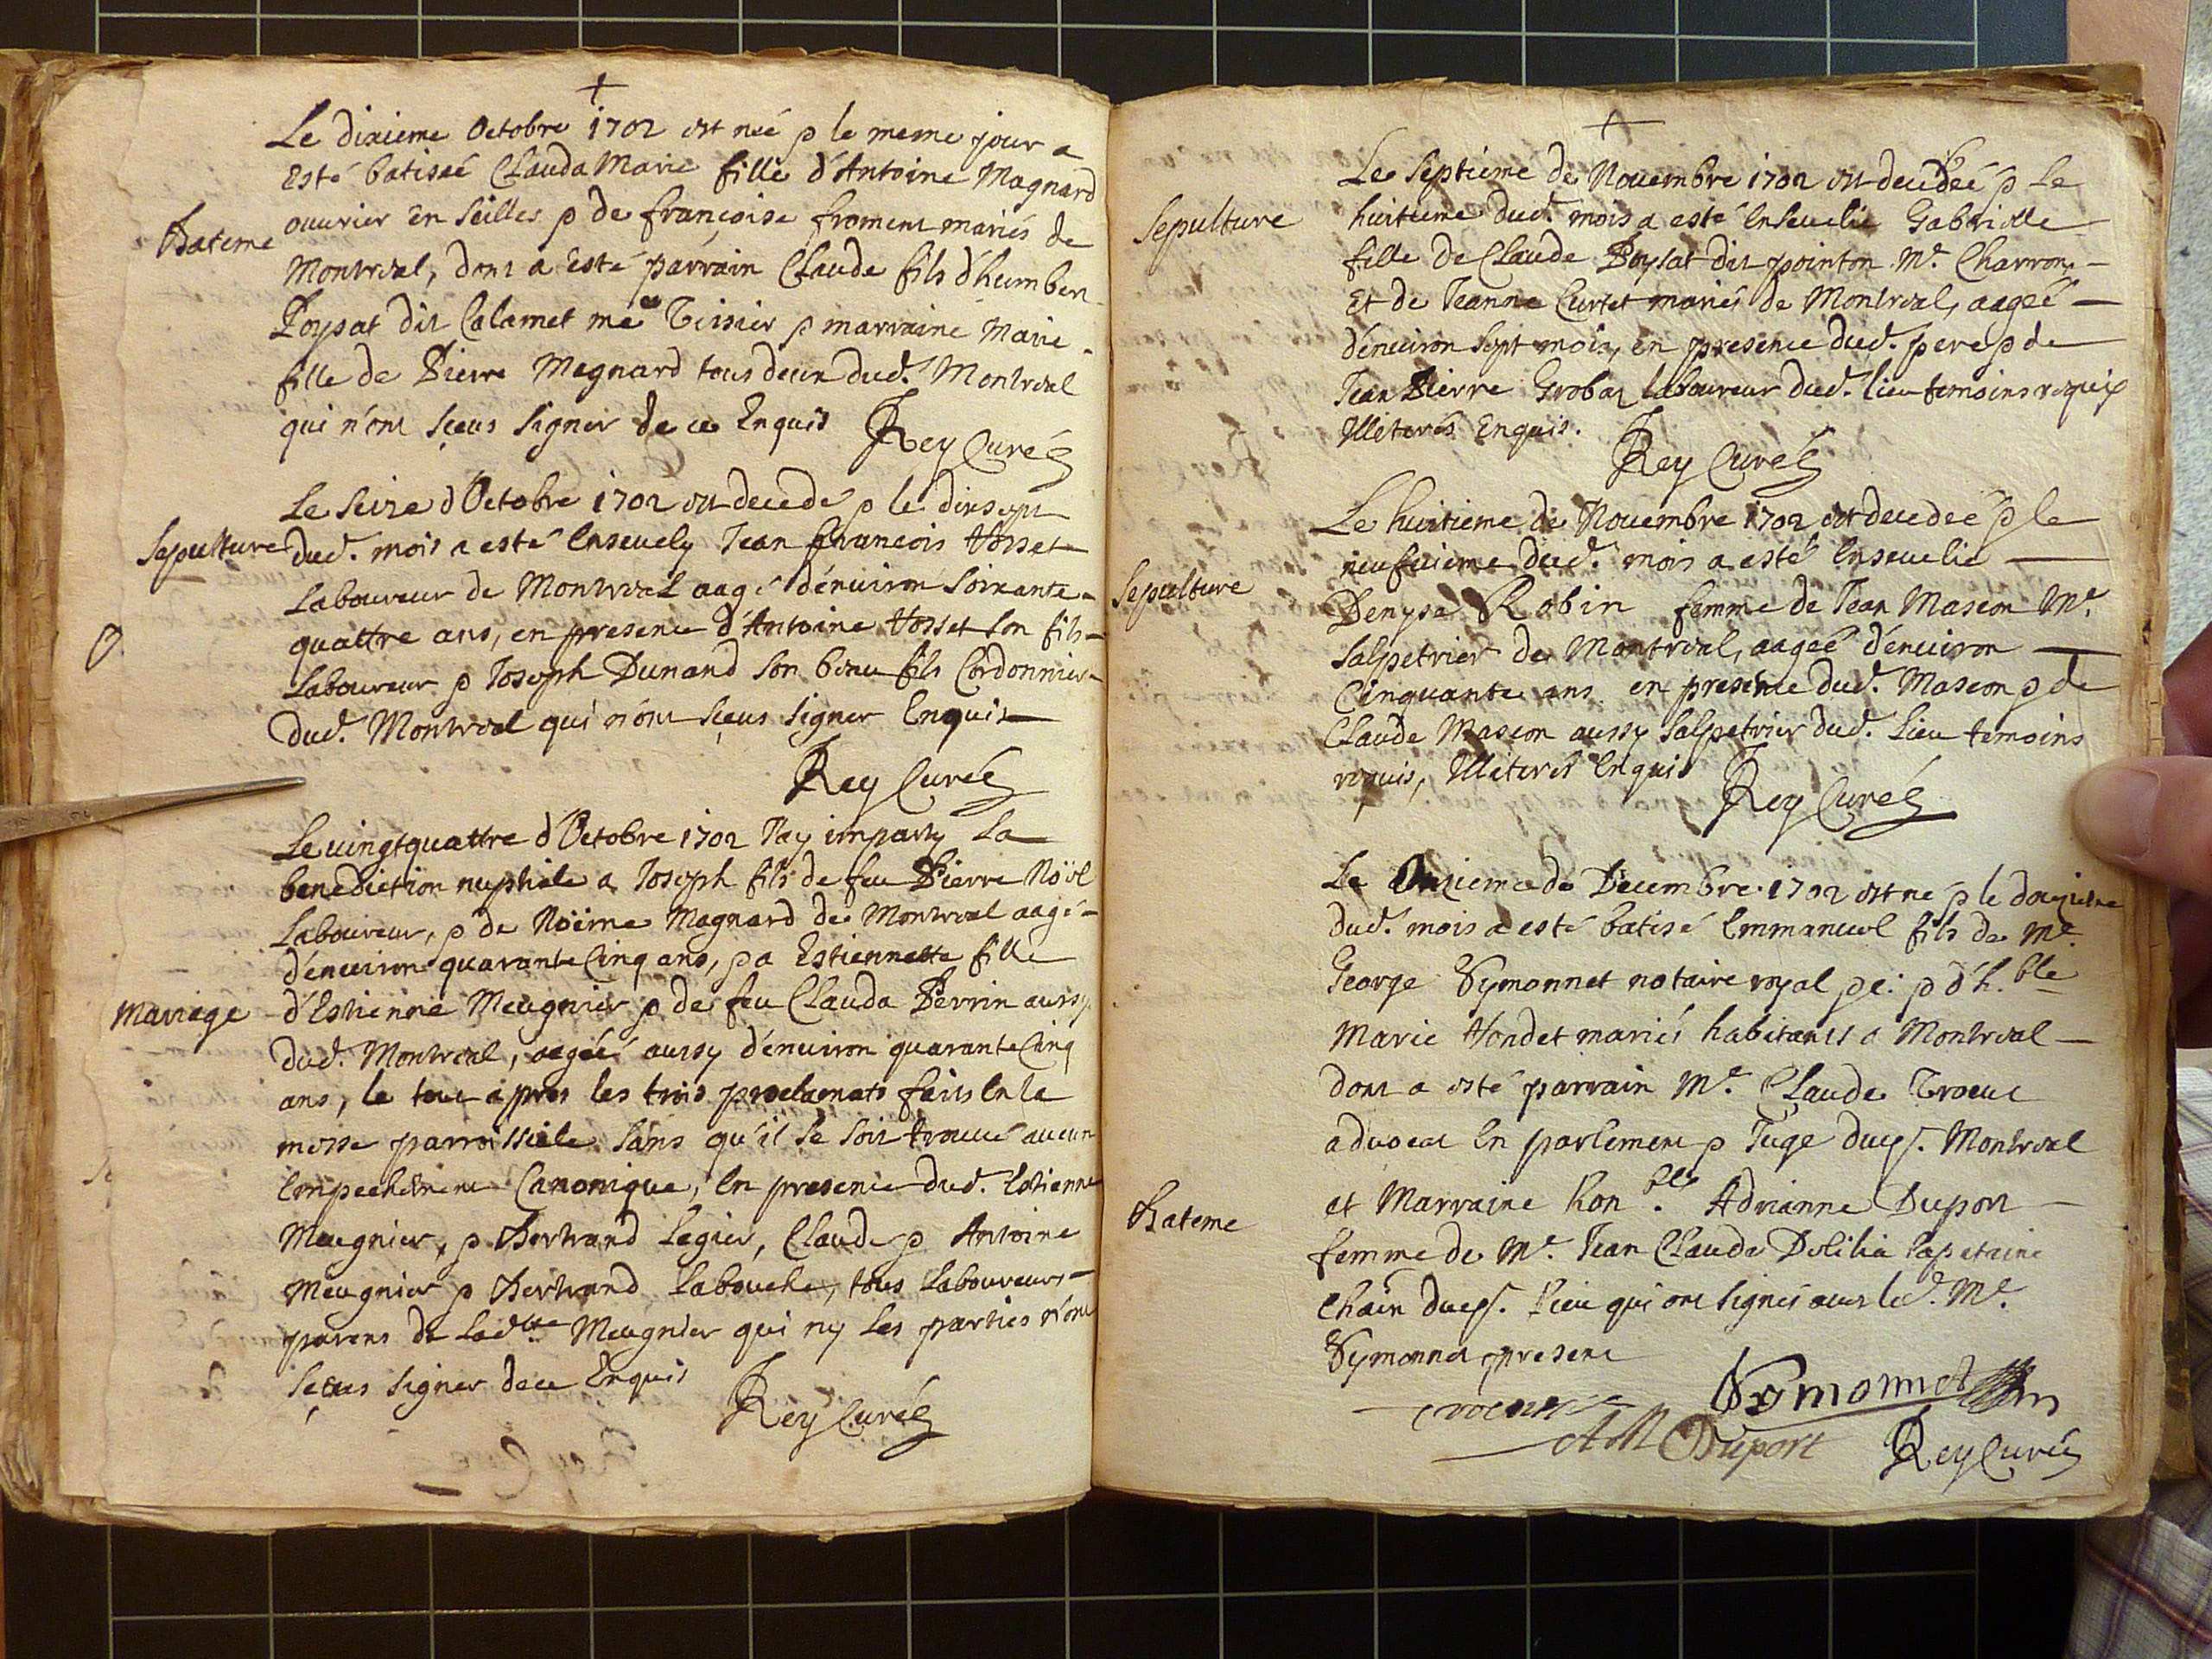 +
Le dixieme Octobre 1702 est née & le meme jour a
Esté batiseé Clauda Marie fille d'Antoine Magnard
Bateme
ouvrier en seilles & de françoise froment mariés de
Montreal, dont a Esté parrain Claude fils d'humbert
Poysat dit Calamet me Tissier & marraine Marie
fille de Pierre Magnard tous deux dud. Montreal
qui n'ont sçeus signer de ce Enquis
Rey Curé
Le seize d'Octobre 1702 est decedé & le dixsept
Sepulture
dud. mois a esté Ensevely Jean françois
Laboureur de Montreal aagé d'environ soixante
quattre ans, en presence d'Antoine son fils
Laboureur & Joseph Dunand son beau fils Cordonnier
dud. Montreal qui n'ont sçeus signer Enquis
Rey Curé
Le vingtquattre d'Octobre 1702 J'ay imparty La
benediction nuptiale a Joseph fils de feu Pierre Noël
Laboureur, & de Magnard de Montreal aagé
d'environ quarante Cinq ans, & a Estiennette fille
Mariage
d'Estienne Meugnier & de feu Clauda Perrin aussy
dud. Montreal, aagéé aussy d'environ quarante Cinq
ans, le tout apres les trois proclamats faits En la
messe parroissiale sans qu'il se soit trouvé aucun
Empechement Canonique, En presence dud. Estienne
Meugnier, & Bertrand Legier, Claude & Antoine
Meugnier & Bertrand Labouche, tous Laboureurs
parens de lad.tte Meugnier qui ny les parties n'ont
sçeus signer de ce Enquis
Rey Curé
+
Le septieme de Novembre 1702 est decedeé & Le
Sepulture
huitieme dud. mois a esté Ensevelie Gabrielle
fille de Claude Poysat dit pointon M.e Charron
Et de Jeanne Curtet mariés de Montreal, aageé
d'environ sept mois, en presence dud. pere & de
Jean Pierre Grobaz laboureur dud. lieu temoins requis
Illiterés Enquis.
Rey Curé
Le huitieme de Novembre 1702 est decedeé & le
neufvieme dud. mois a esté Ensevelie
Sepulture
Denyse Robin femme de Jean Mascon M.e
salpetrier de Montreal, aageé d'environ
Cinquante ans en presence dud. Mascon & de
Claude Mascon aussy salpetrier dud. Lieu temoins
requis, Illiterés Enquis
Rey Curé
Le Onzieme de Decembre 1702 est né & le douzieme
dud. mois a esté batisé Emmanuel fils de M.e
George Symonnet notaire royal & d'h.ble
Marie mariés habitants a Montreal
dont a esté parrain M.e Claude
advocat En parlement & Juge dups. Montreal
Bateme
et Marraine hon.ble Adrianne Duport
femme de M.e Jean Claude
dups. Lieu qui ont signés avec led. M.e
Symonnet present
Symonnet
AM Duport
Rey Curé